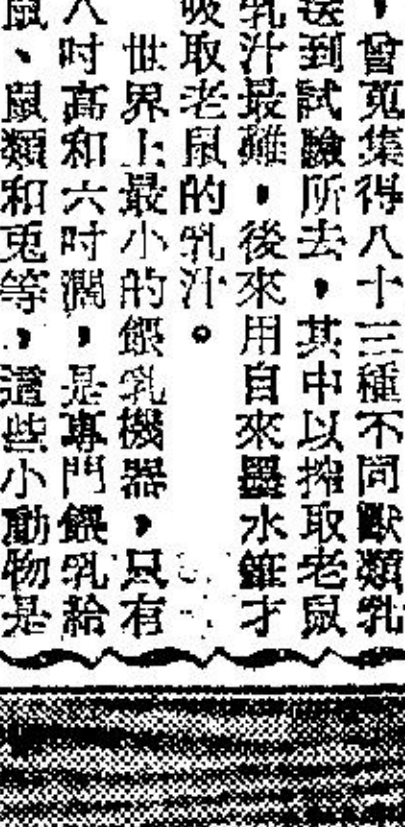 ，曾蒐集得八十三種不同獸類乳
送到試驗所去，其中以搾取老鼠
乳汁最難，後來用自來墨水錐才
吸取老鼠的乳汁。
世界上最小的餵乳機器，只有
八吋高和六吋濶，是專門餵乳給
鼠、鼠類和兎等，這些小動物是